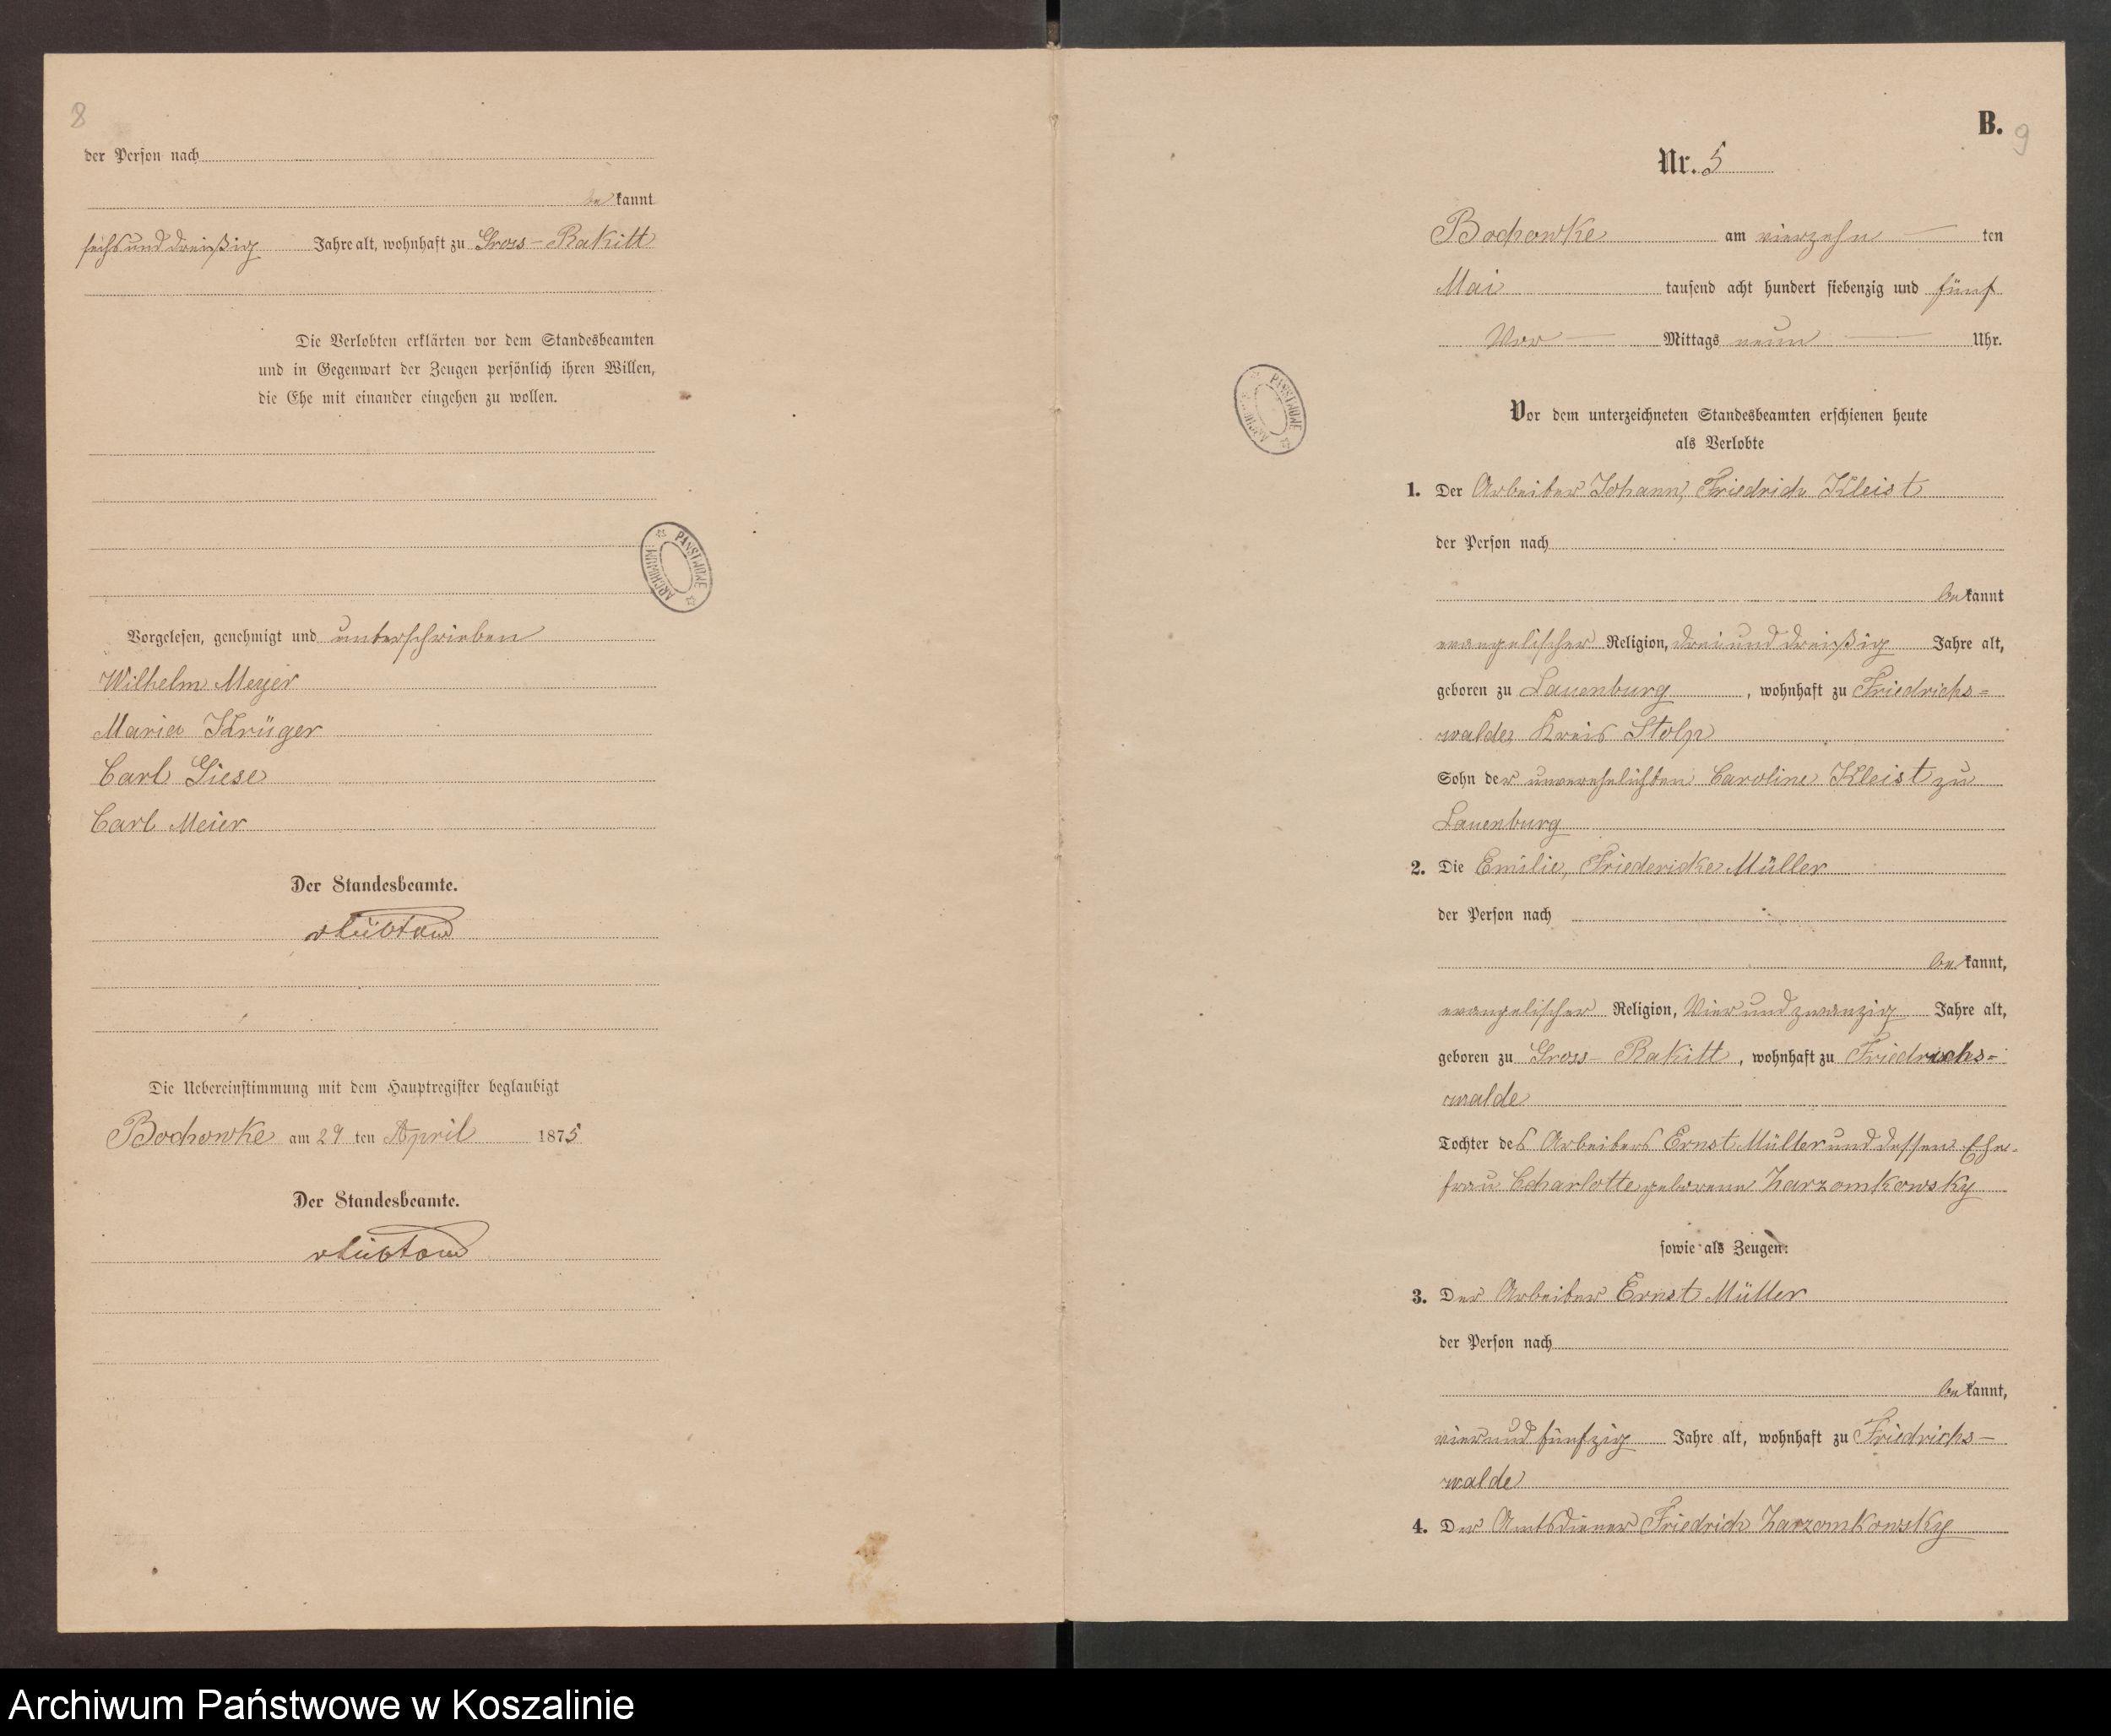 8
der Person nach
bekannt
sechs und dreißig Jahre alt, wohnhaft zu Gross-Rakitt
Die Verlobten erklärten vor dem Standesbeamten
und in Gegenwart der Zeugen persönlich ihren Willen,
die Ehe mit einander eingehen zu wollen.
ARCHIWUM PAŃSTWOWE
Vorgelesen, genehmigt und unterschrieben
Wilhelm Meyer
Maria Krüger
Carl Giese
Carl Meier
Der Standesbeamte.
Die Uebereinstimmung mit dem Hauptregister beglaubigt
Bochowke am 29 ten April 1875
Der Standesbeamte.
B.
9
Nr. 5
Bochowke am vierzehn ten
Mai tausend acht hundert siebenzig und fünf
Vor Mittags neun Uhr.
ARCHIWUM PAŃSTWOWE
Vor dem unterzeichneten Standesbeamten erschienen heute
als Verlobte
1. Der Arbeiter Johann, Friedrich Kleist
der Person nach
bekannt
evangelischer Religion, drei und dreißig Jahre alt,
geboren zu Lauenburg, wohnhaft zu Friedrichs=
walde, Kreis Stolp
Sohn der unverehelichten Caroline Kleist zu
Lauenburg
2. Die Emilie, Friedericke Müller
der Person nach
bekannt,
evangelischer Religion, Vier und zwanzig Jahre alt,
geboren zu Gross-Rakitt, wohnhaft zu Friedrichs=
walde
Tochter des Arbeiters Ernst Müller und dessen Ehe-
frau Charlotte geborene Zarzomkowsky
sowie als Zeugen:
3. Der Arbeiter Ernst Müller
der Person nach
bekannt,
vier und fünfzig Jahre alt, wohnhaft zu Friedrichs-
walde
4. Der Amtsdiener Friedrich Zarzomkowsky
Archiwum Państwowe w Koszalinie